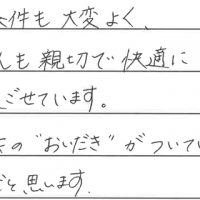 件も大変よく、
も親切で快適に
ごせています。
の"おいだき"がついてい
と思います。